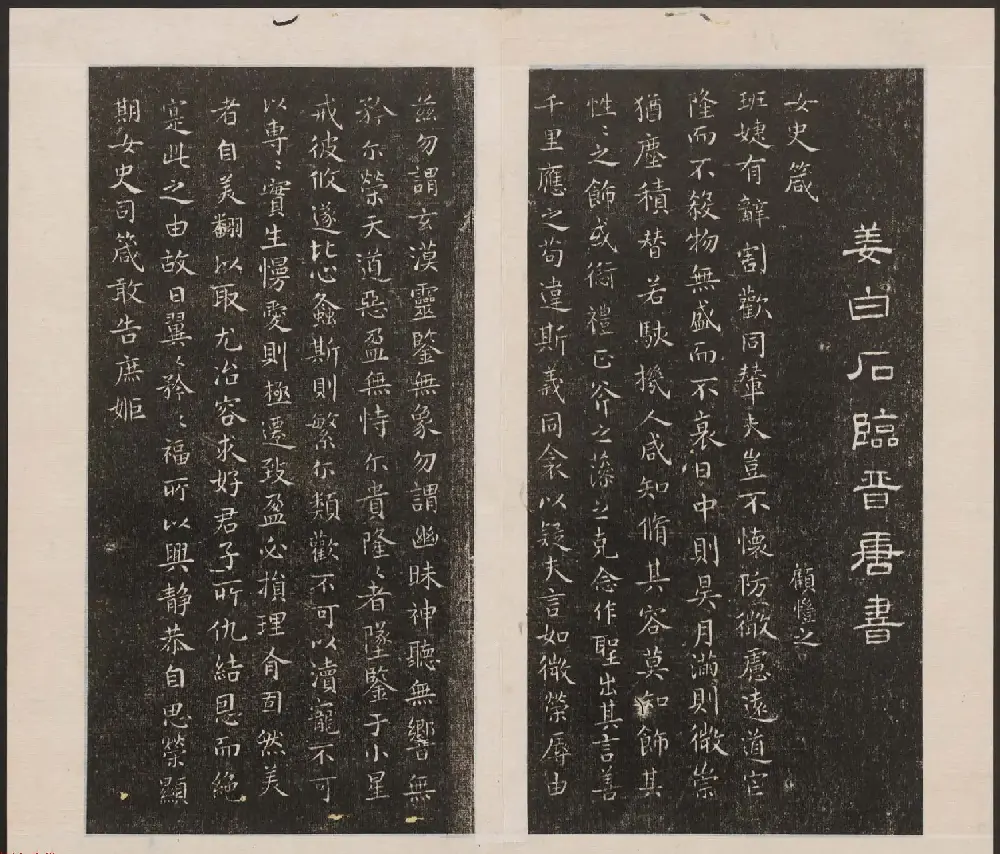 姜白石臨晋唐書
女史箴 顧愷之
班婕有辭割歡同輦夫豈不懷防微慮遠道罔
隆而不殺物無盛而不衰日中則昃月滿則微崇
猶塵積替若駭機人咸知脩其容莫知飾其
性〻之飾或愆禮正斧之藻之克念作聖出其言善
千里應之苟違斯義同衾以疑夫言如微榮辱由
茲勿謂玄漠靈鑒無象勿謂幽昧神聽無響無
矜尔榮天道惡盈無恃尔貴隆〻者墜鑒于小星
戒彼攸遂比心螽斯則繁尔類歡不可以瀆寵不可
以專〻實生慢愛則極遷致盈必損理有固然美
者自美翩以取尤冶容求好君子所仇結恩而絕
寔此之由故曰翼〻矜〻福所以興静恭自思榮顯
期女史司箴敢告庶姬